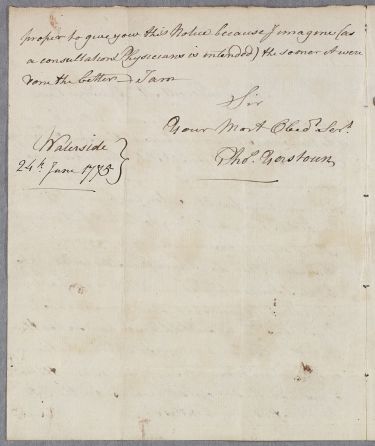 proper to give you this Notice because I imagine (as
a consultation Physicians is intended) the sooner it were
the better I am
Sir
Your Most Obed.t Ser.t
Tho.s
Waterside
24th June 1775